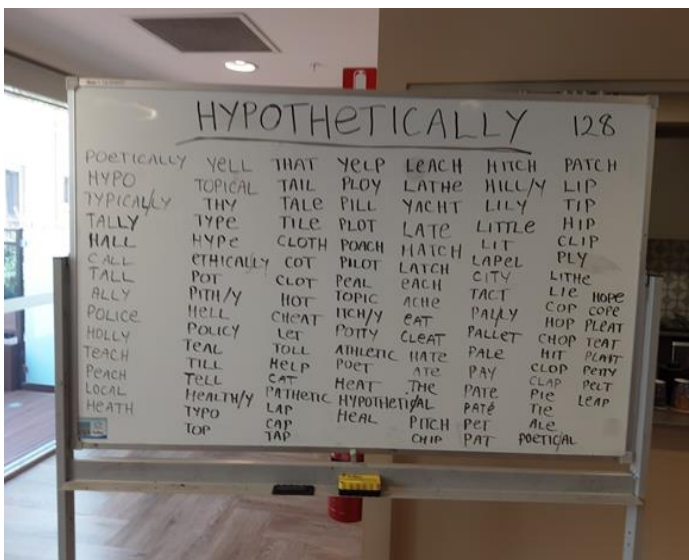 HYPOTHETICALLY 128
POETICALLY
HYPO
TYPICAL/LY
TALLY
HALL
CALL
TALL
ALLY
POLICE
HOLLY
TEACH
PEACH
LOCAL
HEATH
YELL
TOPICAL
THY
TYPE
HYPE
ETHICAL/LY
POT
PITH/Y
HELL
POLICY
TEAL
TILL
TELL
HEALTH/Y
TYPO
TOP
THAT
TAIL
TALE
TILE
CLOTH
COT
CLOT
HOT
CHEAT
LET
TOLL
HELP
CAT
PATHETIC
LAP
CAP
TAP
YELP
PLOY
PILL
PLOT
POACH
PILOT
PEAL
TOPIC
ITCH/Y
POTTY
ATHLETIC
POET
HEAT
HYPOTHETIC/AL
HEAL
LEACH
LATHE
YACHT
LATE
HATCH
LATCH
EACH
ACHE
EAT
CLEAT
HATE
ATE
THE
PITCH
CHIP
HITCH
HILL/Y
LILY
LITTLE
LIT
LAPEL
CITY
TACT
PAL/LY
PALLET
PALE
PAY
PATE
PATÉ
PET
PAT
PATCH
LIP
TIP
HIP
CLIP
PLY
LITHE
LIE
COP
HOP
CHOP
HIT
CLOP
CLAP
PIE
TIE
ALE
POETIC/AL
HOPE
COPE
PLEAT
TEAT
PLAIT
PETTY
PELT
LEAP